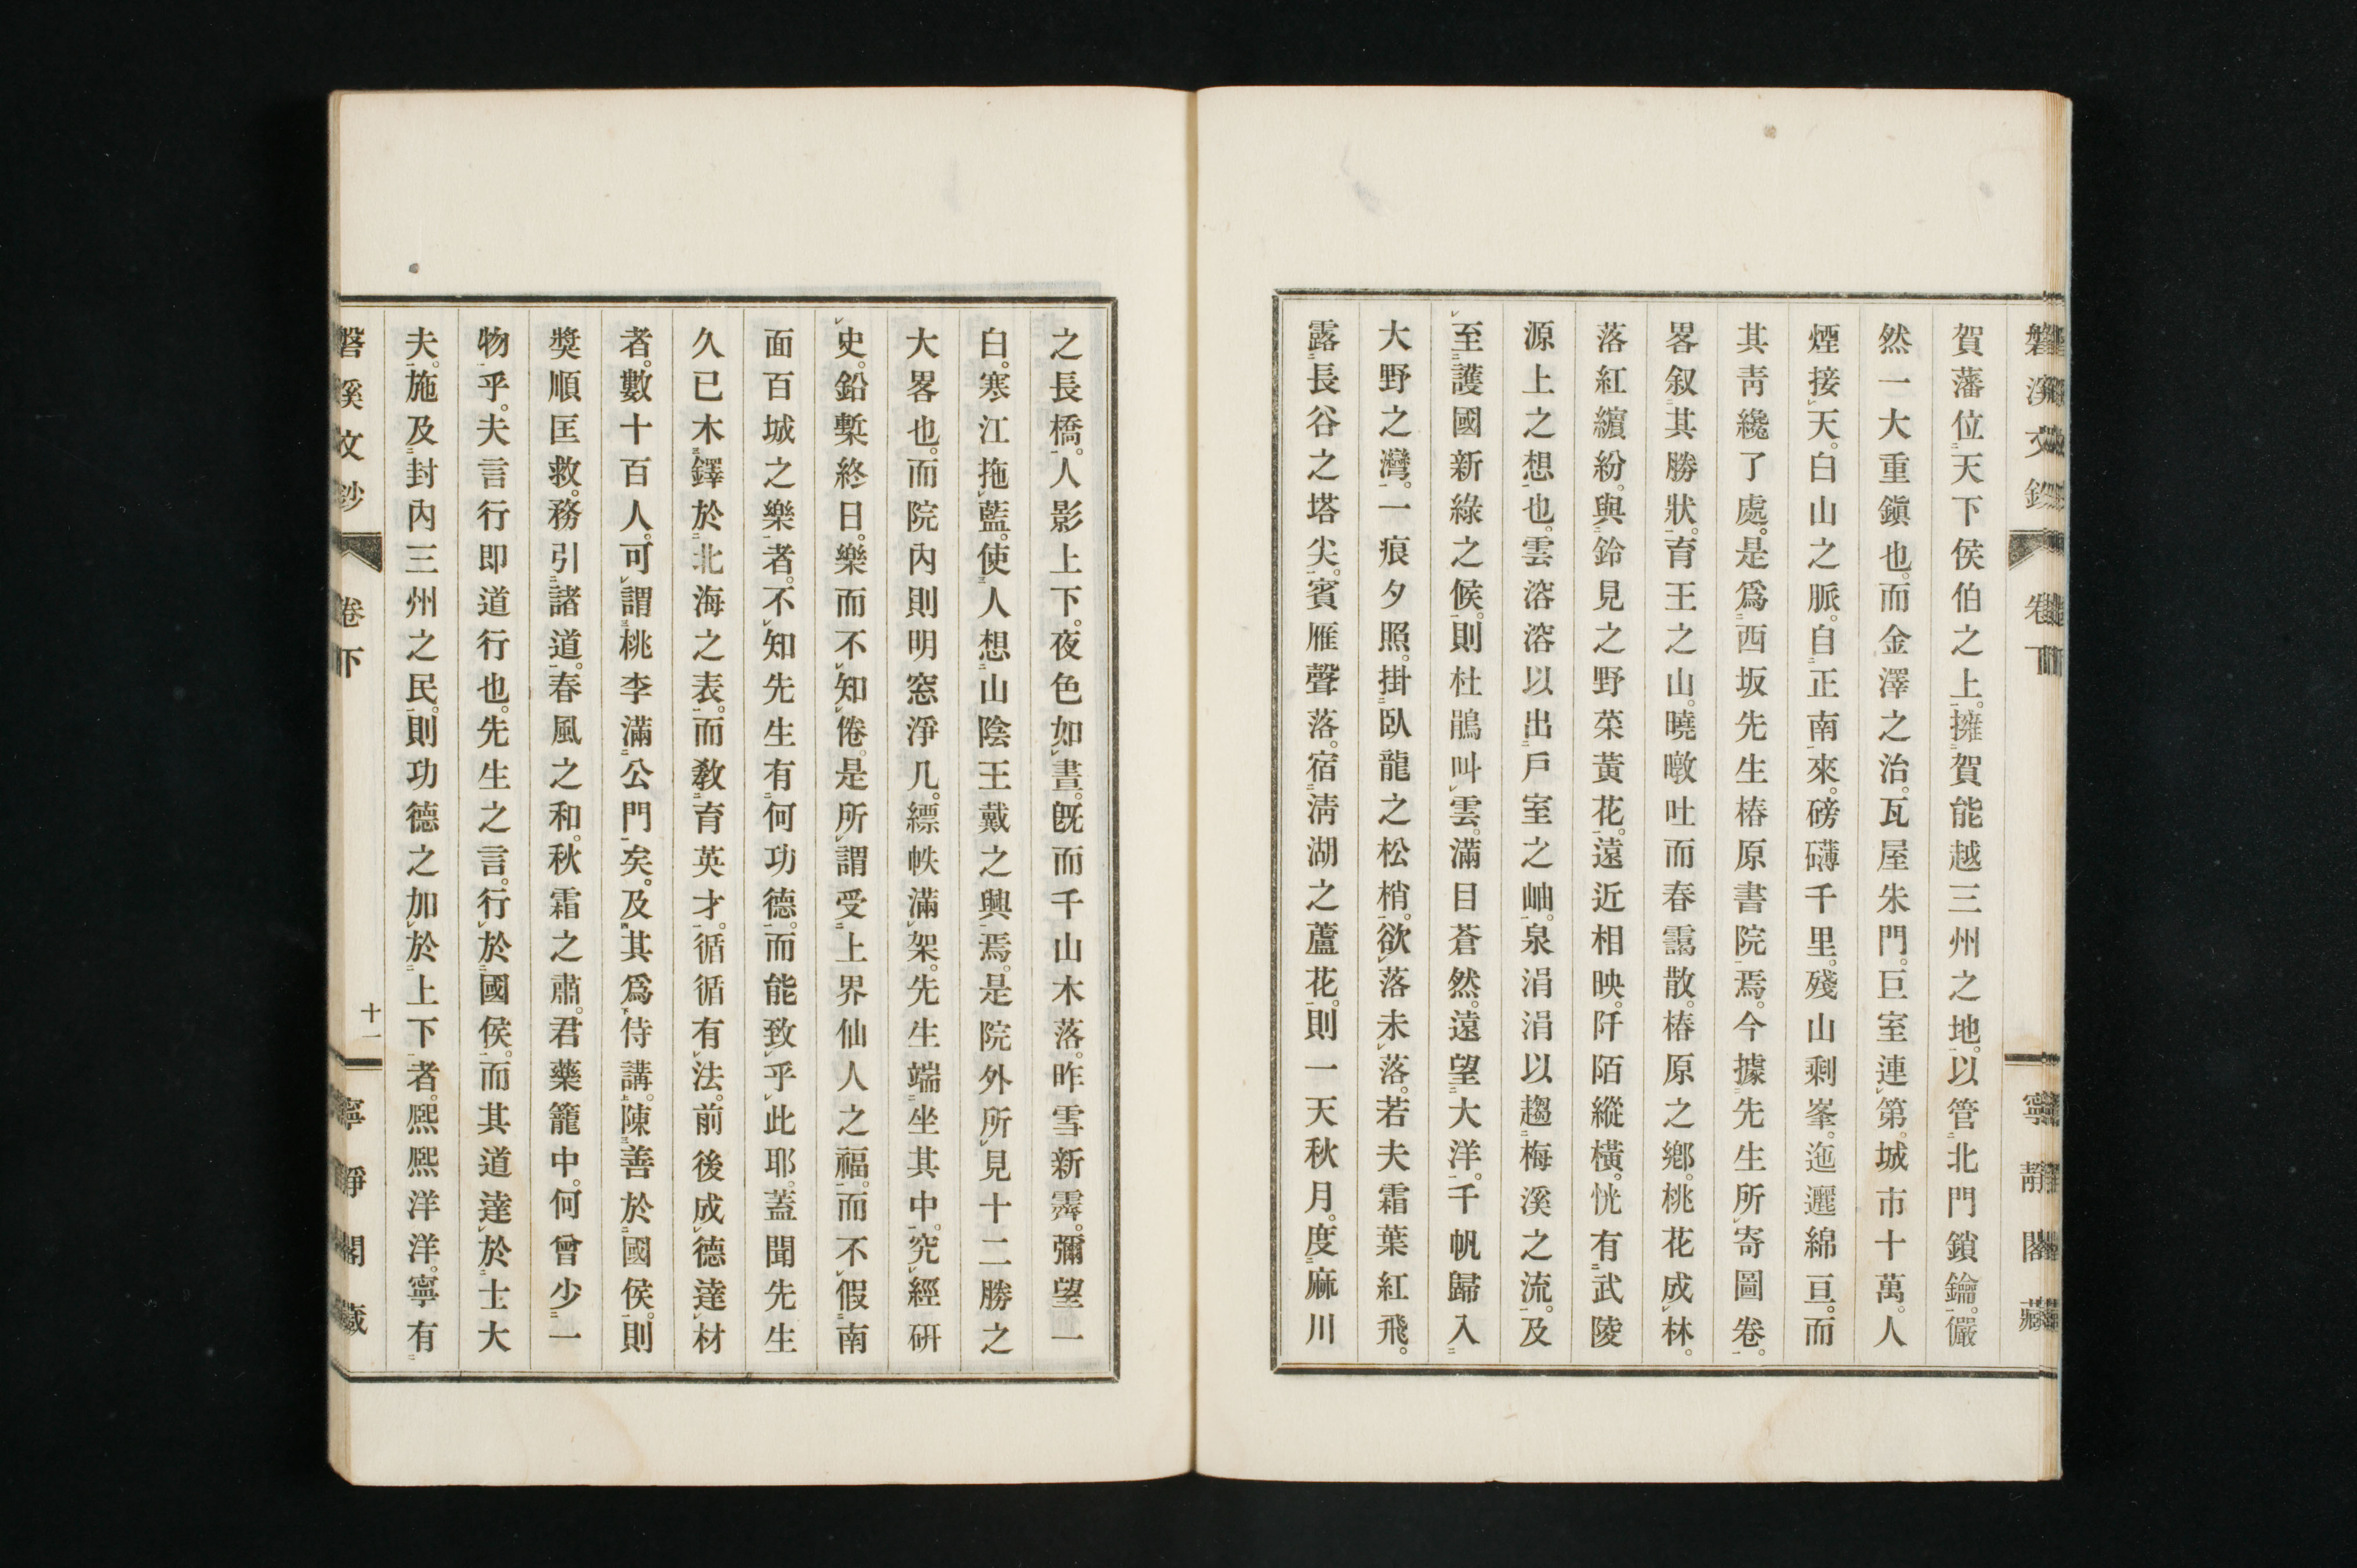 磐溪文鈔 卷下 寧靜閣藏
賀藩位天下侯伯之上。擁賀能越三州之地。以管北門鎖鑰。儼
然一大重鎭也。而金澤之治。瓦屋朱門。巨室連第。城市十萬。人
煙接天。白山之脈。自正南來。磅礴千里。殘山剩峯。迤邐綿亘。而
其靑纔了處。是爲西坂先生椿原書院焉。今據先生所寄圖卷。
畧叙其勝狀。育王之山。曉暾吐而春靄散。椿原之鄕。桃花成林。
落紅繽紛。與鈴見之野菜黃花。遠近相映。阡陌縱橫。恍有武陵
源上之想也。雲溶溶以出戶室之岫。泉涓涓以趨梅溪之流。及
至護國新綠之候。則杜鵑叫雲。滿目蒼然。遠望大洋。千帆歸入
大野之灣。一痕夕照。掛臥龍之松梢。欲落未落。若夫霜葉紅飛。
露長谷之塔尖。賓雁聲落。宿淸湖之蘆花。則一天秋月。度麻川
之長橋。人影上下。夜色如晝。旣而千山木落。昨雪新霽。彌望一
白。寒江拖藍。使人想山陰王戴之興焉。是院外所見十二勝之
大畧也。而院內則明窓淨几。縹帙滿架。先生端坐其中。究經硏
史。鉛槧終日。樂而不知倦。是所謂受上界仙人之福。而不假南
面百城之樂者。不知先生有何功德。而能致乎此耶。蓋聞先生
久已木鐸於北海之表。而敎育英才。循循有法。前後成德達材
者。數十百人。可謂桃李滿公門矣。及其爲侍講。陳善於國侯。則
奬順匡救。務引諸道。春風之和。秋霜之肅。君藥籠中。何曾少一
物乎。夫言行即道行也。先生之言。行於國侯。而其道達於士大
夫。施及封內三州之民。則功德之加於上下者。熙熙洋洋。寧有
磐溪文鈔 卷下 十一 寧靜閣藏